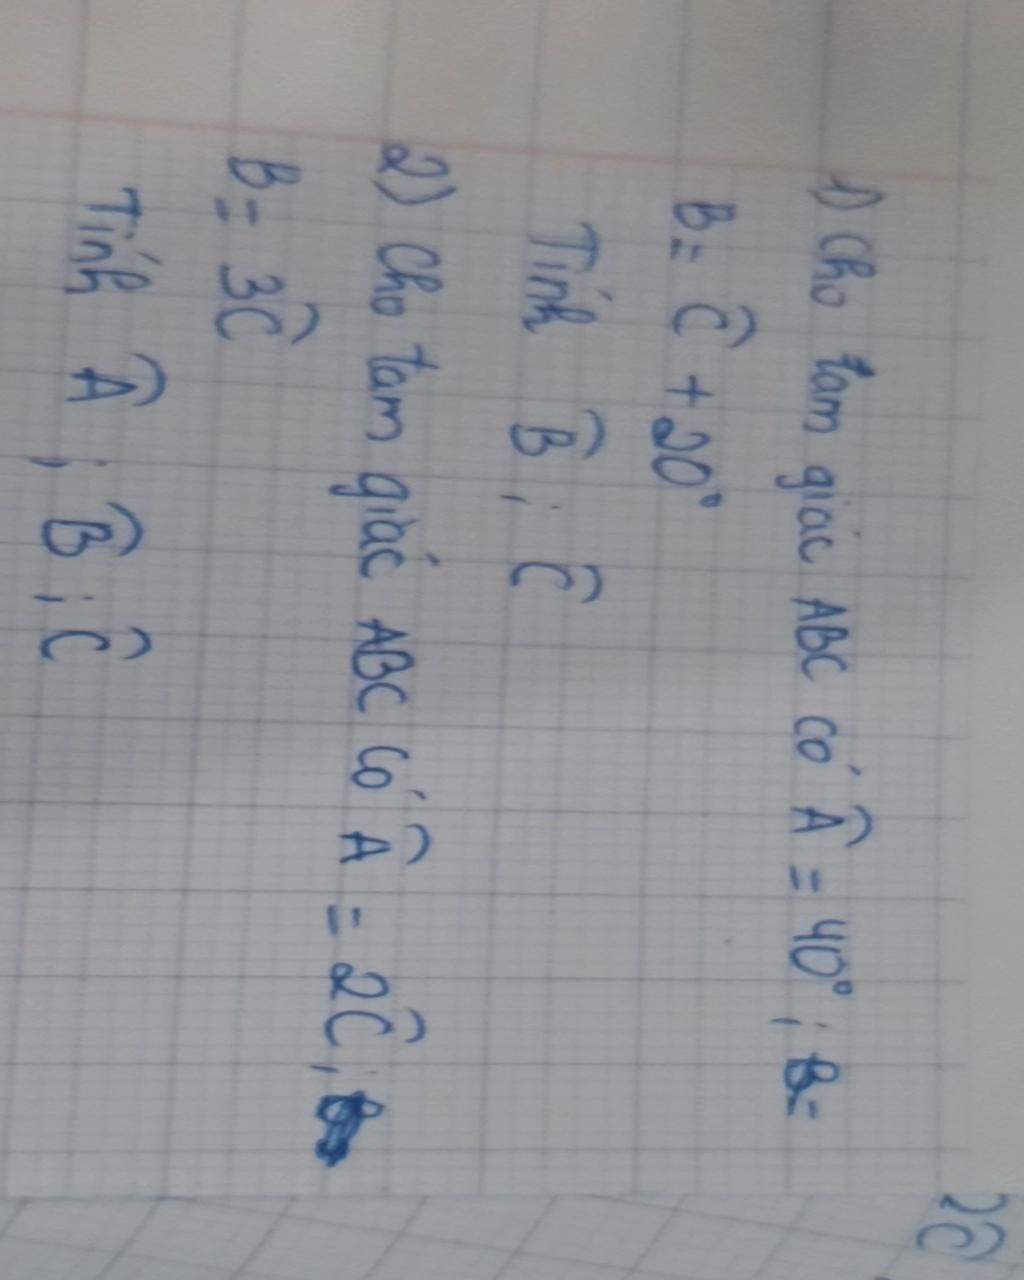 2Ĉ
1) Cho tam giác ABC có Â = 40° ; B =
B = Ĉ + 20°
Tính B̂ ; Ĉ
2) Cho tam giác ABC có Â = 2Ĉ ;
B = 3Ĉ
Tính Â ; B̂ ; Ĉ